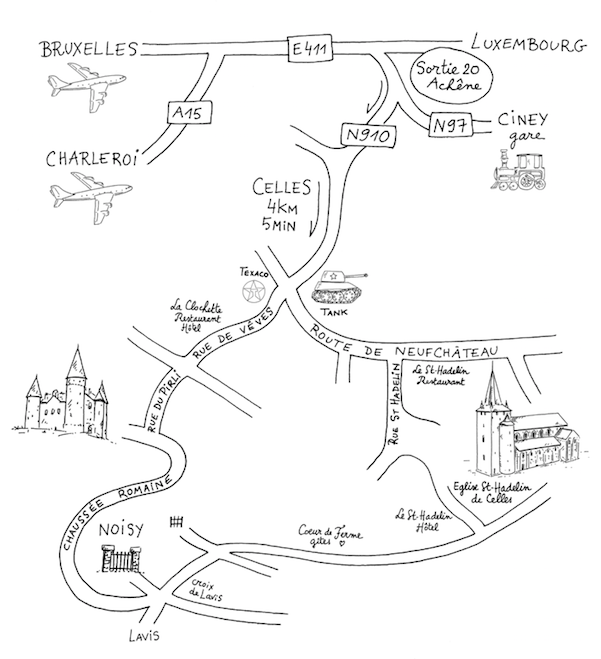 BRUXELLES
E411
LUXEMBOURG
Sortie 20
Achêne
A15
N910
N97
CiNEY
gare
CHARLEROi
CELLES
4KM
5MiN
TEXACO
TANK
La Clochette
Restaurant
Hôtel
RUE DE VÊVES
ROUTE DE NEUFCHÂTEAU
RUE DU PIRLI
RUE ST HADELIN
Le St-Hadelin
Restaurant
Eglise St-Hadelin
de Celles
CHAUSSÉE ROMAINE
NOiSY
Coeur de Ferme
gîtes
Le St-Hadelin
Hôtel
croix
de Lavis
LAVIS